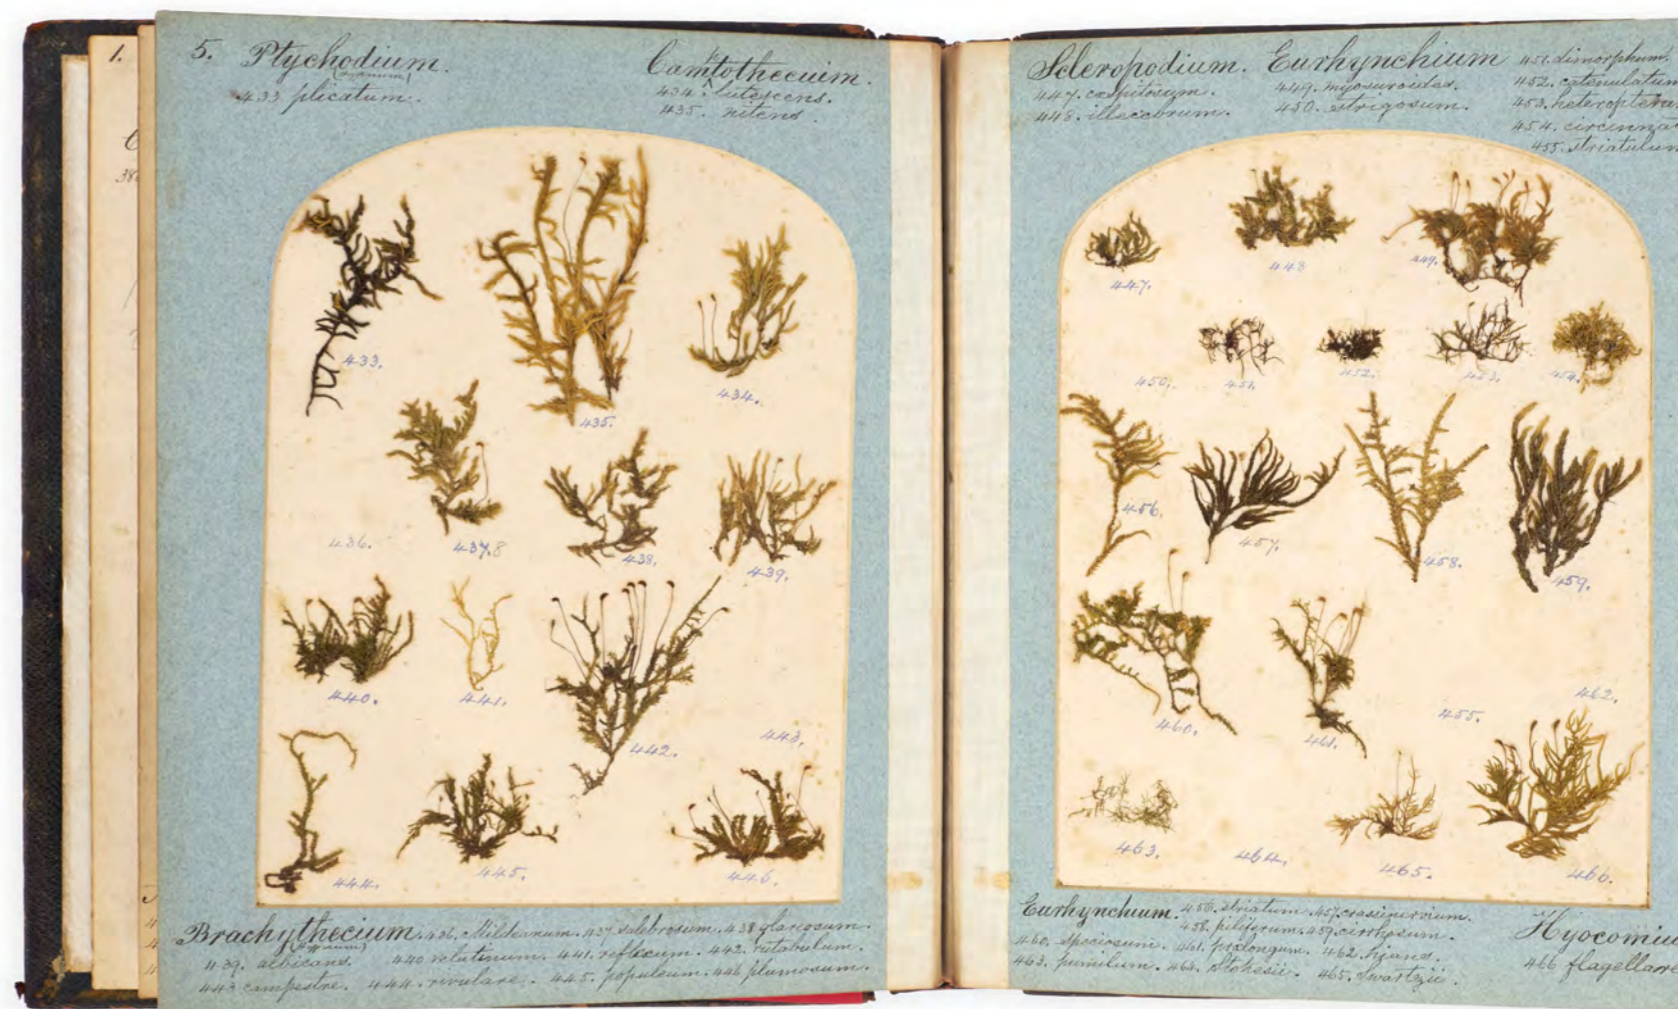 1.
5. Ptychodium.
433. plicatum.
Camptothecium.
434. lutescens.
435. nitens.
433.
435.
434.
436.
437.8
438.
439.
440.
441.
442.
443.
444.
445.
446.
Brachythecium. 436. Mildeanum. 437 salebrosum. 438 glareosum.
439. albicans. 440 velutinum. 441. reflexum. 442. rutabulum.
443 campestre. 444. rivulare. 445. populeum. 446 plumosum.
Scleropodium.
447. cæspitosum.
448. illecebrum.
Eurhynchium
449. myosuroides.
450. strigosum.
451. dimorphum.
452. catenulatum
453. heteropteru
454. circinna
455. striatulum
447.
448
449.
450.
451.
452.
453.
454.
456.
457.
458.
459.
460.
461.
455.
462.
463.
464.
465.
466.
Eurhynchium. 456. striatum. 457. crassinervium.
458. piliferum. 459. cirrhosum.
460. speciosum. 461. prælongum. 462. hians.
463. pumilum. 464. Stokesii. 465. Swartzii.
Hyocomiu
466 flagellare